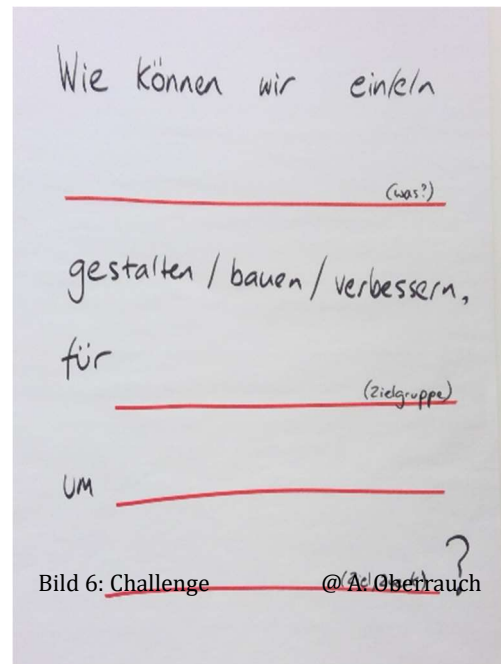 Wie können wir ein/e/n
(was?)
gestalten / bauen / verbessern,
für
(Zielgruppe)
um
?
Bild 6: Challenge @ A. Oberrauch